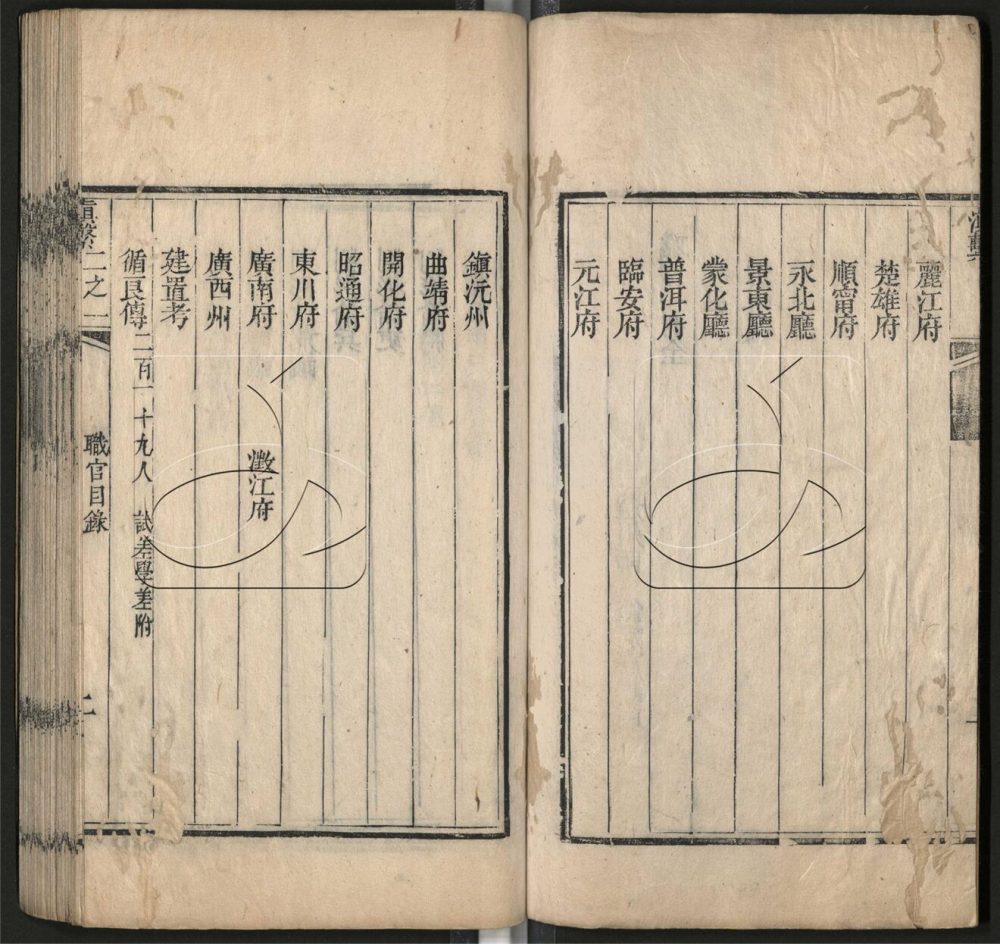 麗江府
楚雄府
順甯府
永北廳
景東廳
蒙化廳
普洱府
臨安府
元江府
鎮沅州
曲靖府
開化府
昭通府
東川府
廣南府 澂江府
廣西州
建置考
循良傳二百一十九人 試差學差附
滇繫二之一 職官目錄